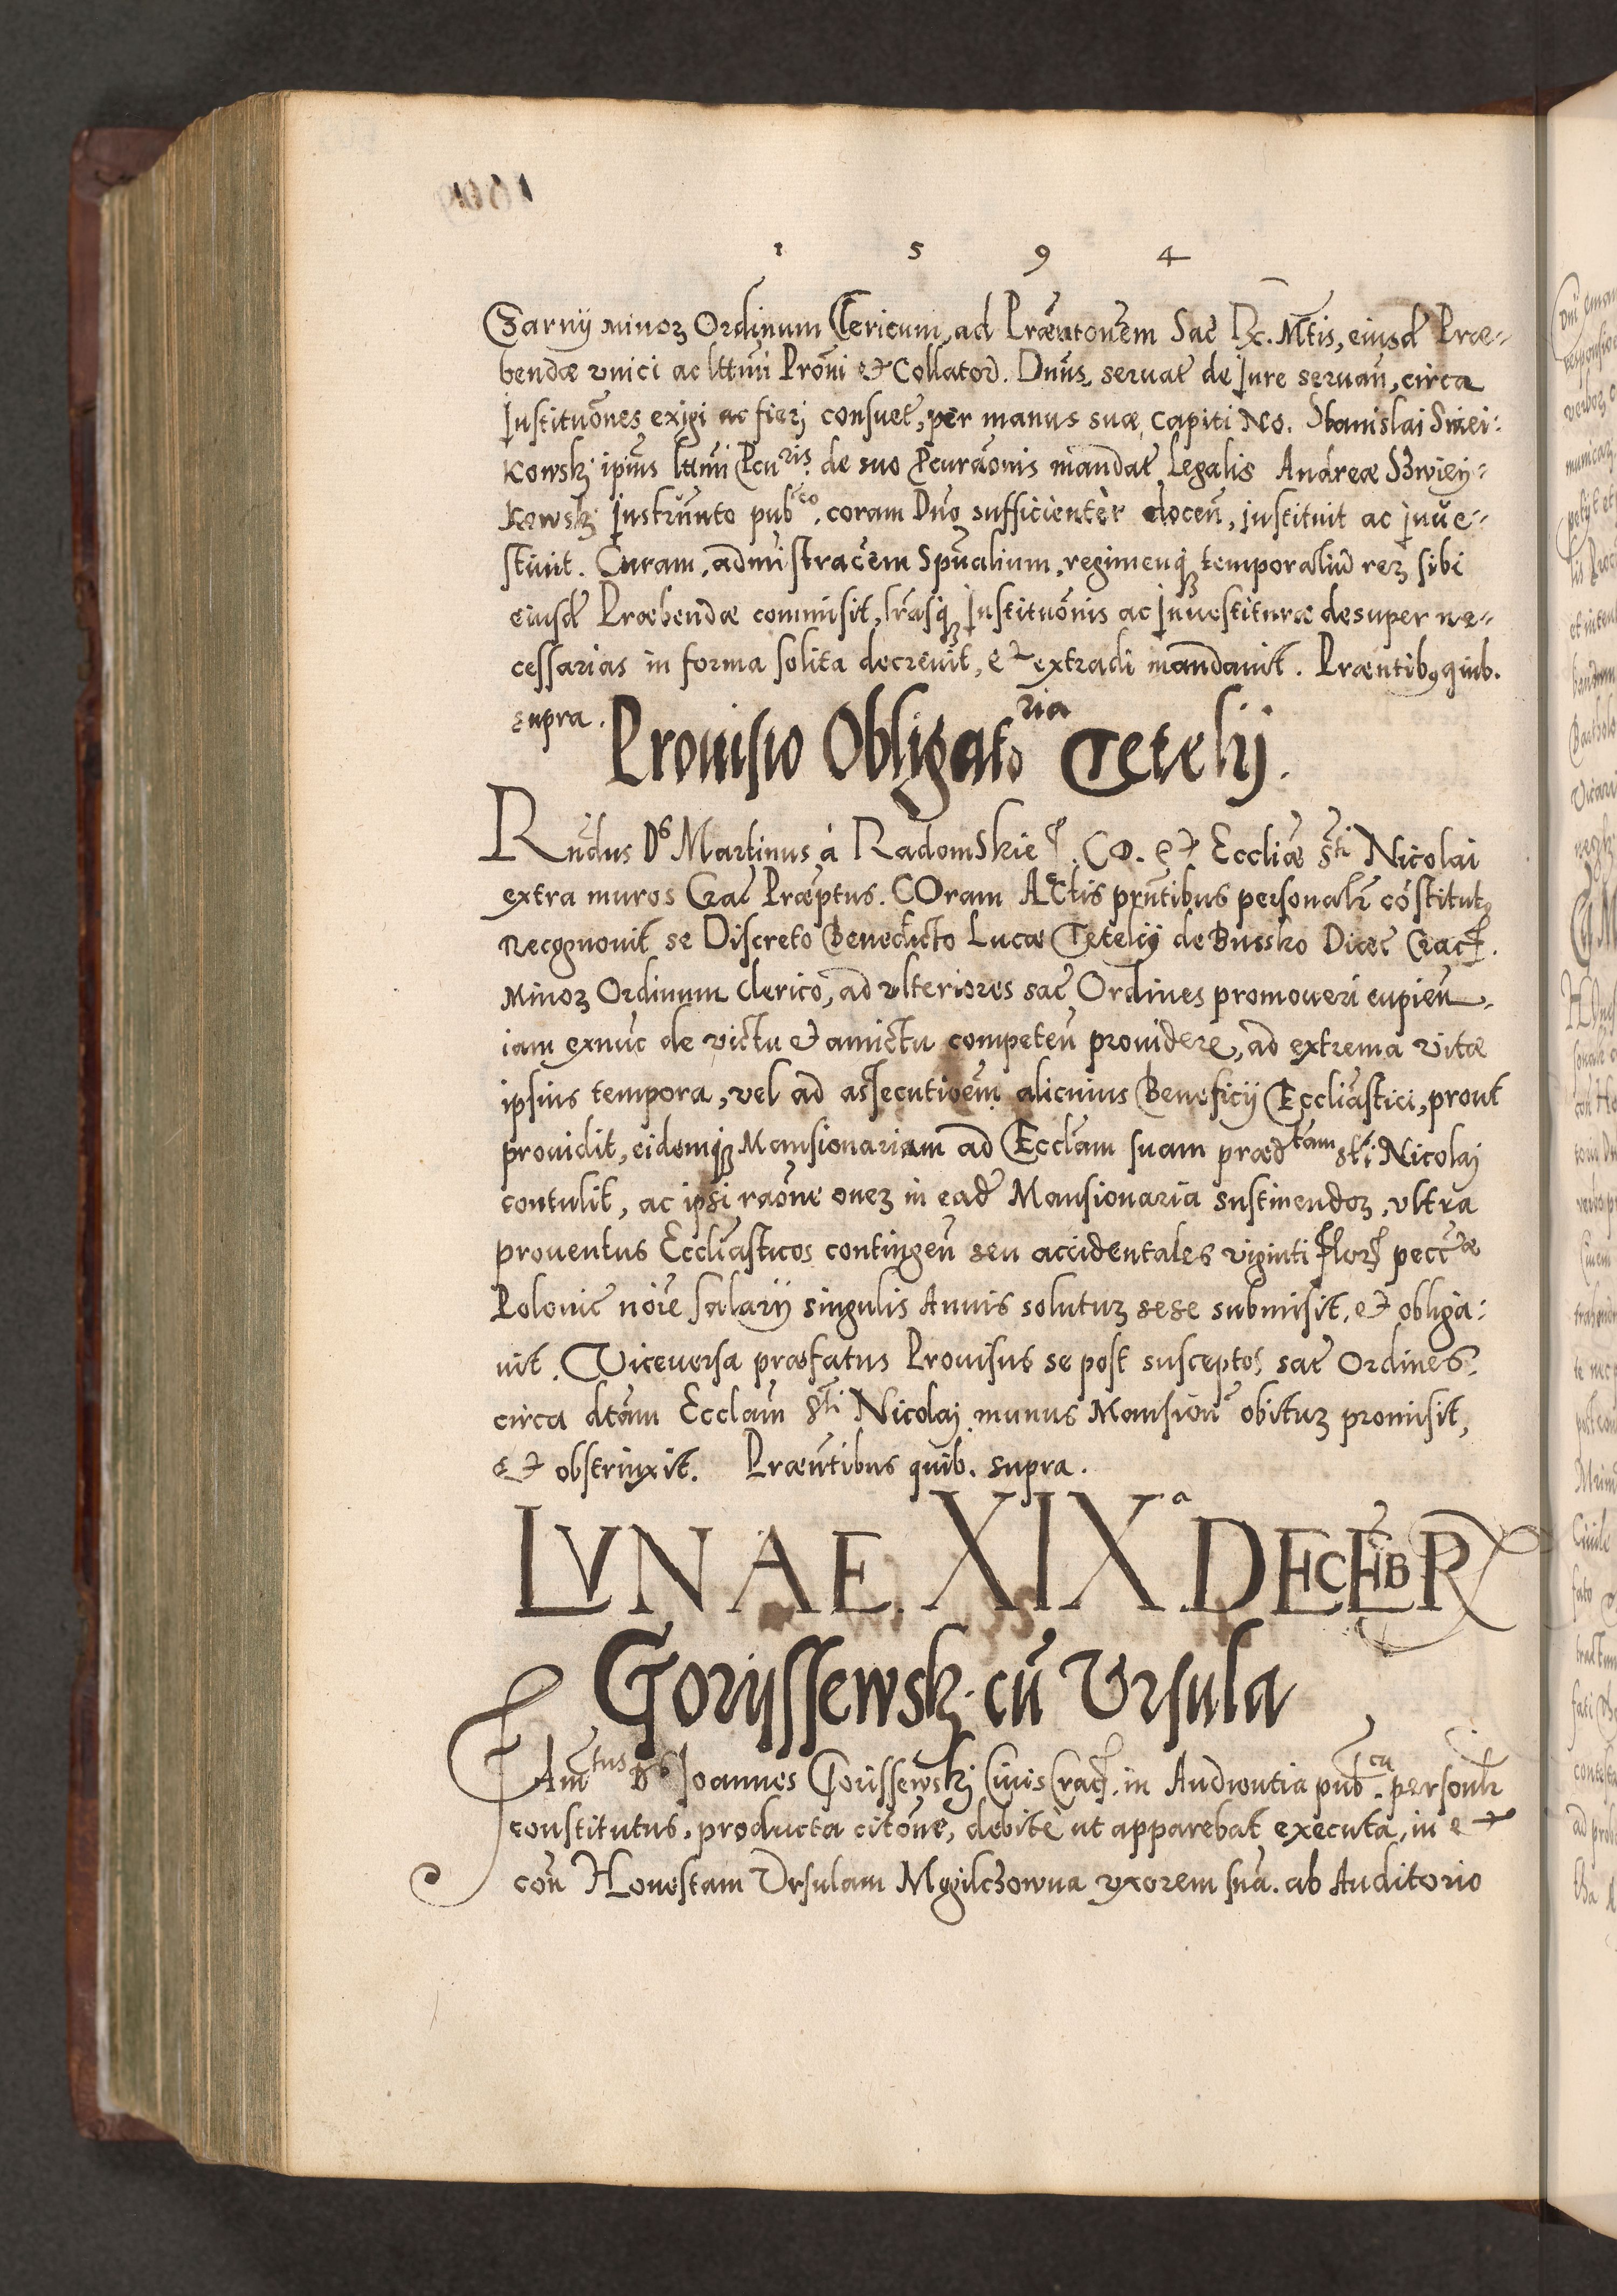 1 5 9 4
Czarnij minoꝝ Ordinum Clericum, ad Præntonem Sac Rx. Mtis, eiusd Præ-
bendæ vnici ac lttmi Proni et Collator. Dnus, servat de Iure servan, circa
Institutiones exigi ac fieri consuet, per manus suæ capiti No. Stanislai
kowsk ipius lttmi Pcuris de suo Pcuraonis mandat legalis Andreæ
kowsk Instrunto pubco. coram Dno sufficienter docen, instituit ac inve-
stiuit. Curam, admistracem Spualium, regimenqꝫ temporaliu reꝝ sibi
eiusd Præbendæ commisit, lrasqꝫ Instituonis ac Investituræ desuper ne-
cessarias in forma solita decrevit, et extradi mandauit. Præntibꝯ quib.
supra.
Prouisio Obligatoria Tetelij.
Rndus Ds Martinus à Radomskie. CO. et Eccliæ Sti Nicolai
extra muros Crac Præptus. COram Actis prntibus personalr constitutꝯ
Recognovit se Discreto Benedicto Lucæ Tetelij de Bussko Diœc Crac.
Minoꝝ Ordinum Clerico, ad vlteriores sac Ordines promoveri cupien
iam exnuc de victu et amictu competen providere, ad extrema vitæ
ipsius tempora, vel ad assecutioem alicuius Beneficij Eccliastici, prout
prouidit, eidemqꝫ Mansionariam ad Ecclam suam prædtam Sti Nicolaj
contulit, ac ipsi raone oneꝝ in ead Mansionaria sustinendoꝝ, vltra
proventus Eccliasticos contingen seu accidentales viginti Flor peccæ
Polonic noie salarij singulis Annis solutuꝝ sese submisit, et obliga-
uit. Viceversa præfatus Provisus se post susceptos sac Ordines
circa dtam Ecclam Sti Nicolaj munus Mansion obituꝝ promisit,
et obstrinxit. Præntibus quib. supra.
LVNAE. XIXa DECEMBR
Gorijssewsk. cu Vrsula
Famtus Ds Joannes Gorissewskj Ciuis Crac. in Audientia pubca. personlr
constitutus, producta citone, debitè ut apparebat executa, in et
con Honestam Vrsulam uxorem sua. ab Auditorio